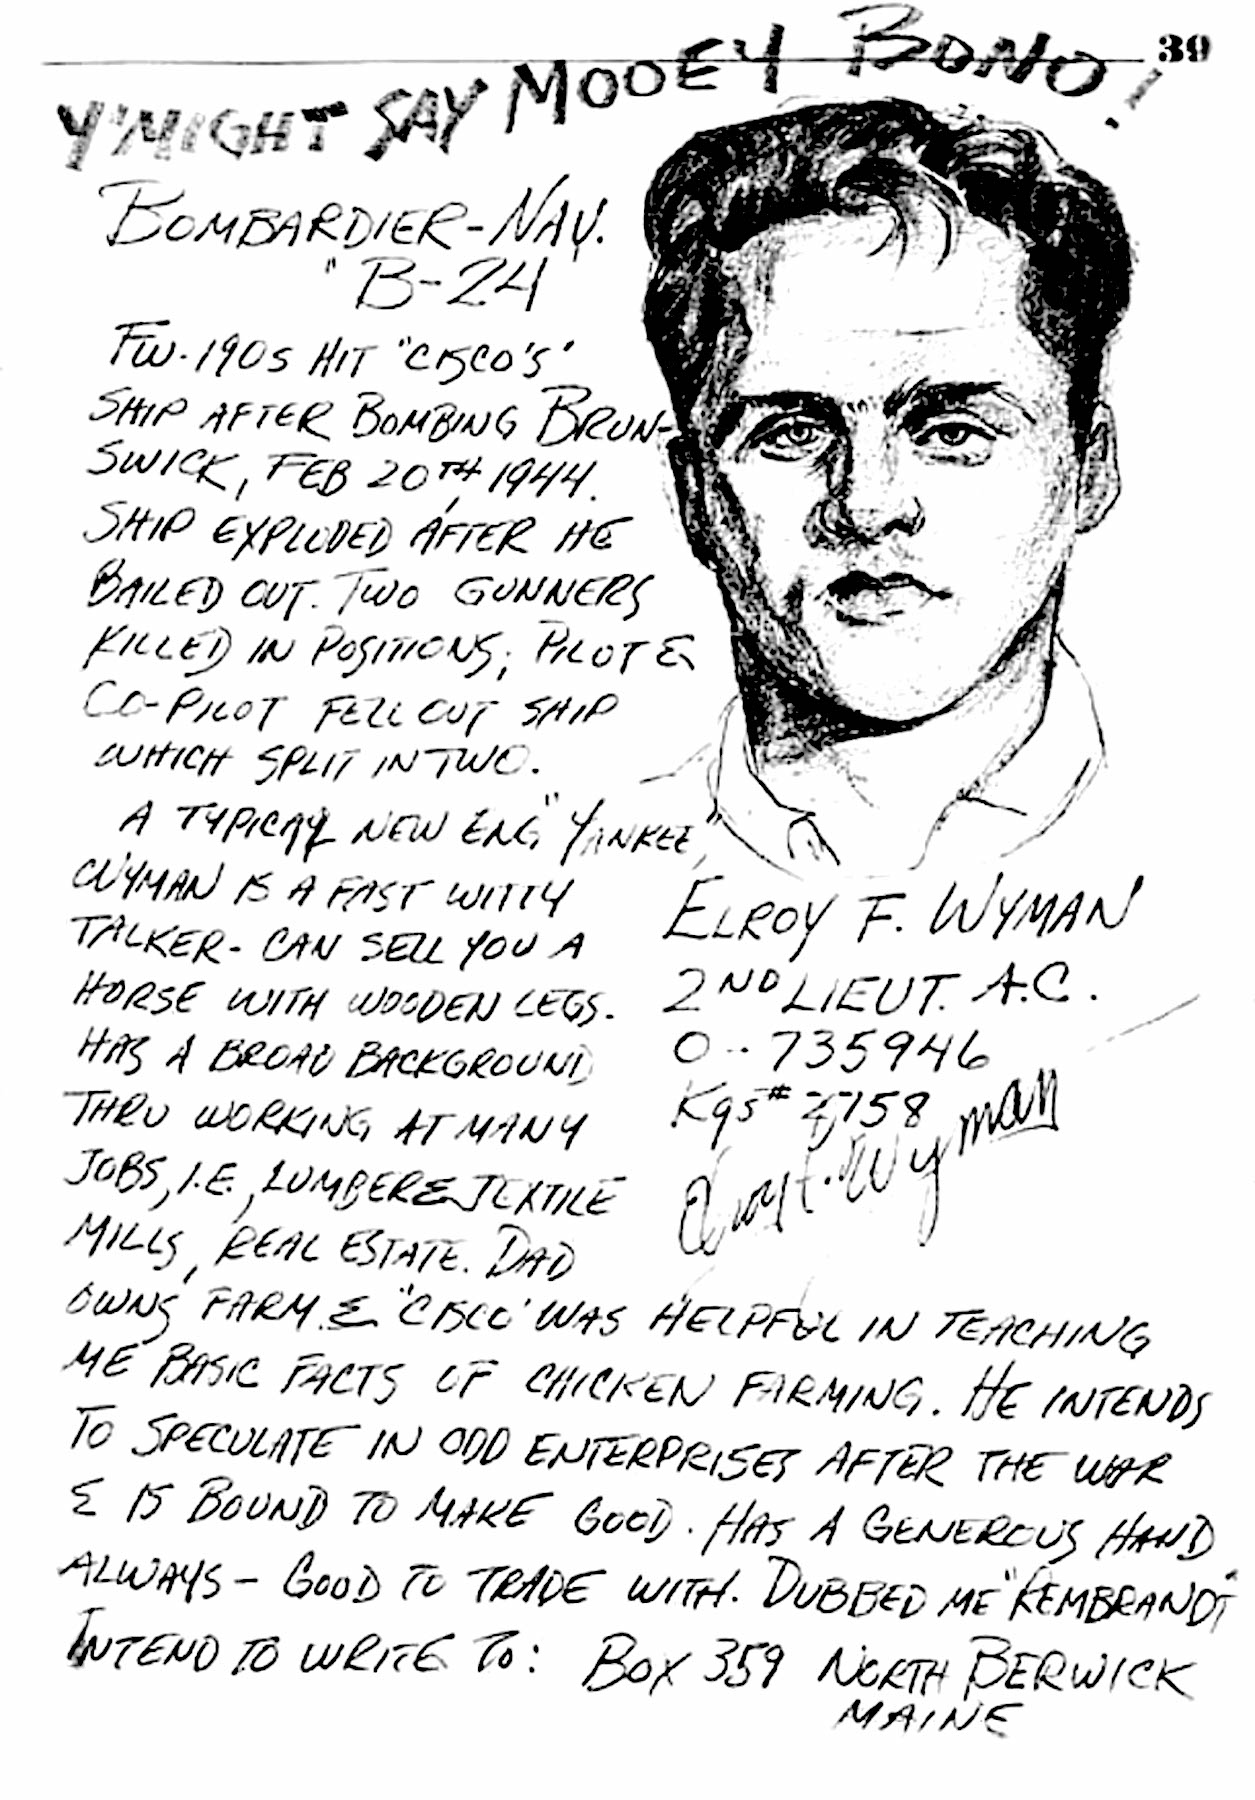 39
Y'MIGHT SAY MOOEY BONO!
BOMBARDIER-NAV.
"B-24
FW-190S HIT "CISCO'S'
SHIP AFTER BOMBING BRUN-
SWICK, FEB 20TH, 1944.
SHIP EXPLODED AFTER HE
BAILED OUT. TWO GUNNERS
KILLED IN POSITIONS; PILOT &
CO-PILOT FELL OUT SHIP
WHICH SPLIT IN TWO.
A TYPICAL NEW ENG "YANKEE",
WYMAN IS A FAST WITTY
TALKER- CAN SELL YOU A
HORSE WITH WOODEN LEGS.
HAS A BROAD BACKGROUND
THRU WORKING AT MANY
JOBS, I.E., LUMBER & TEXTILE
MILLS, REAL ESTATE. DAD
OWNS FARM & "CISCO' WAS HELPFUL IN TEACHING
ME BASIC FACTS OF CHICKEN FARMING. HE INTENDS
TO SPECULATE IN ODD ENTERPRISES AFTER THE WAR
& IS BOUND TO MAKE GOOD. HAS A GENEROUS HAND
ALWAYS - GOOD TO TRADE WITH. DUBBED ME "REMBRANDT"
INTEND TO WRITE TO: BOX 359 NORTH BERWICK
MAINE
ELROY F. WYMAN
2ND LIEUT. A.C.
O-735946
Kgs# 758
Elroy F. Wyman